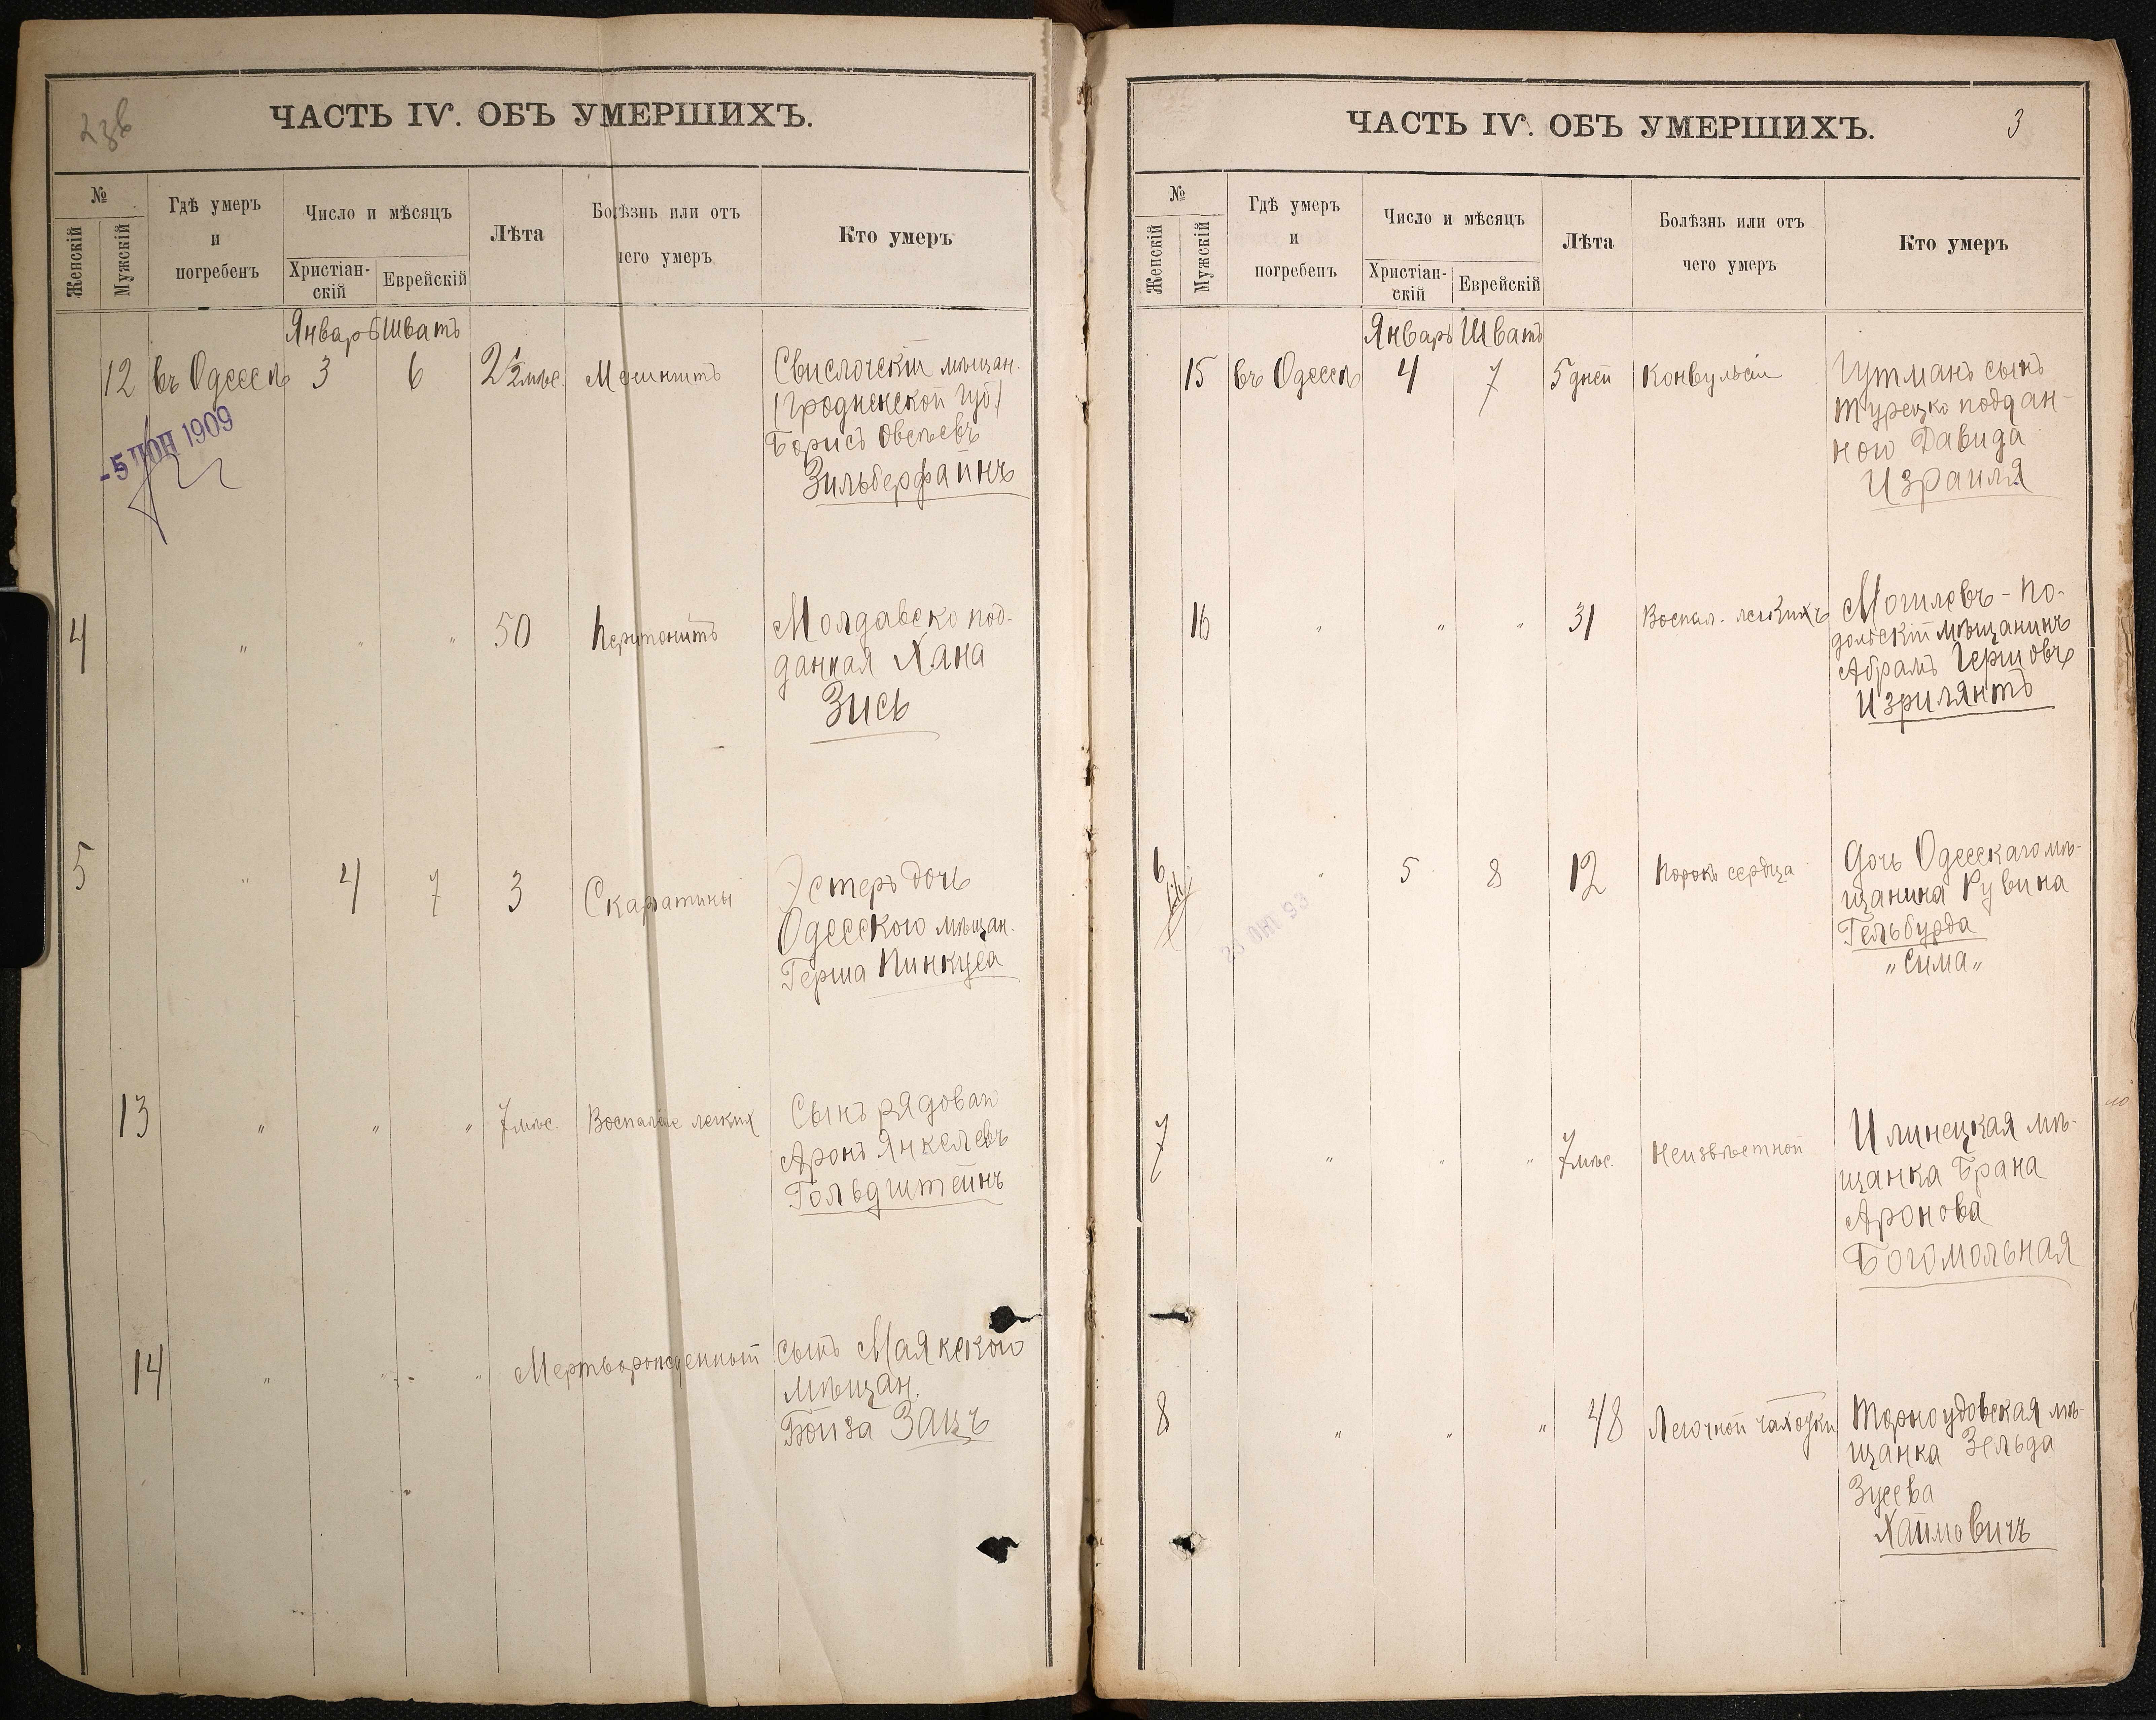 ЧАСТЬ IV. ОБЪ УМЕРШИХЪ.
№
Женскій
Мужскій
Гдѣ умеръ
и
погребенъ
Число и мѣсяцъ
Христіан-
скій
Еврейскій
Лѣта
Болѣзнь или отъ
чего умеръ
Кто умеръ
Январь Шватъ
12 въ Одессѣ 3 6 2½ мѣс. Менингитъ Свислочскій мѣщан.
(Гродненской губ.)
Борисъ Овсѣевъ
Зильберфайнъ
- 5 ІЮН 1909
4 " " " 50 Перитонитъ Молдавско под-
данная Хана
Зись
5 " 4 7 3 Скарлатины Эстеръ дочь
Одесского мѣщан.
Герша Пинкуса
13 " " " 7 мѣс. Воспаленіе легких Сынъ рядоваго
Аронъ Янкелевъ
Гольдштейнъ
14 " " " Мертворожденный сынъ Маякского
мѣщан.
Бойза Зацъ
ЧАСТЬ IV. ОБЪ УМЕРШИХЪ.
3
№
Женскій
Мужскій
Гдѣ умеръ
и
погребенъ
Число и мѣсяцъ
Христіан-
скій
Еврейскій
Лѣта
Болѣзнь или отъ
чего умеръ
Кто умеръ
Январь Шватъ
15 въ Одессѣ 4 7 5 дней Конвульсіи Гутманъ сынъ
Турецко поддан-
ного Давида
Израиля
16 " " " 31 Воспал. легкихъ Могилевъ-По-
дольскій мѣщанинъ
Абрамъ Гершовъ
Изрилянтъ
6 " 5 8 12 Порокъ сердца Дочь Одесскаго мѣ-
щанина Рувина
Гельбурда
"Сима"
7 " " " 7 мѣс. Неизвѣстной Илинецкая мѣ-
щанка Брана
Аронова
Богомольная
8 " " " 48 Легочной чахотки Тарнорудовская мѣ-
щанка Зельда
Зусева
Хаймовичъ